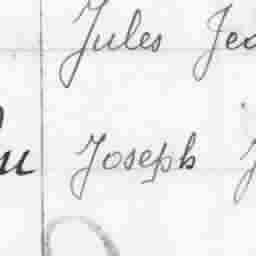 Jules Jea
Joseph J